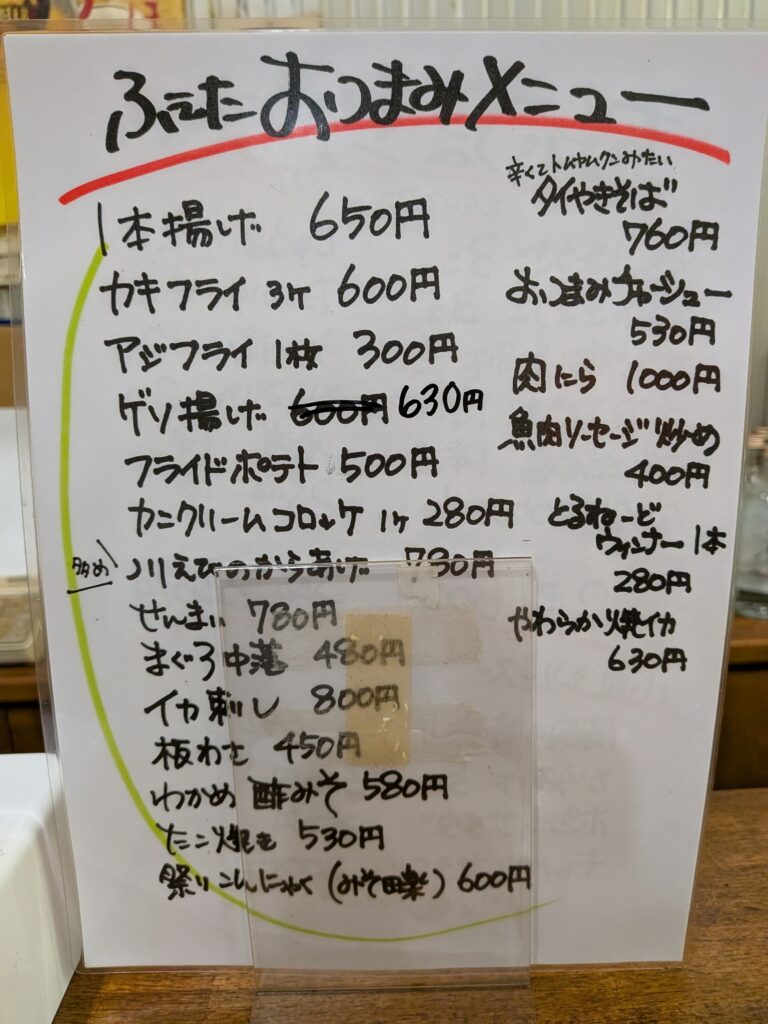 ふえた おつまみメニュー
1本揚げ 650円
カキフライ 3ヶ 600円
アジフライ 1枚 300円
ゲソ揚げ 600円 630円
フライドポテト 500円
カニクリームコロッケ 1ヶ 280円
多め
川えびのからあげ 780円
せんまい 780円
まぐろ中落 480円
イカ刺し 800円
板わさ 450円
わかめ 酢みそ 580円
たこ焼き 530円
祭りこんにゃく (みそ田楽) 600円
辛くてトムヤムクンみたい
タイやきそば
760円
おつまみチャーシュー
530円
肉にら 1000円
魚肉ソーセージ炒め
400円
とるねーど
ウィンナー 1本
280円
やわらか焼イカ
630円